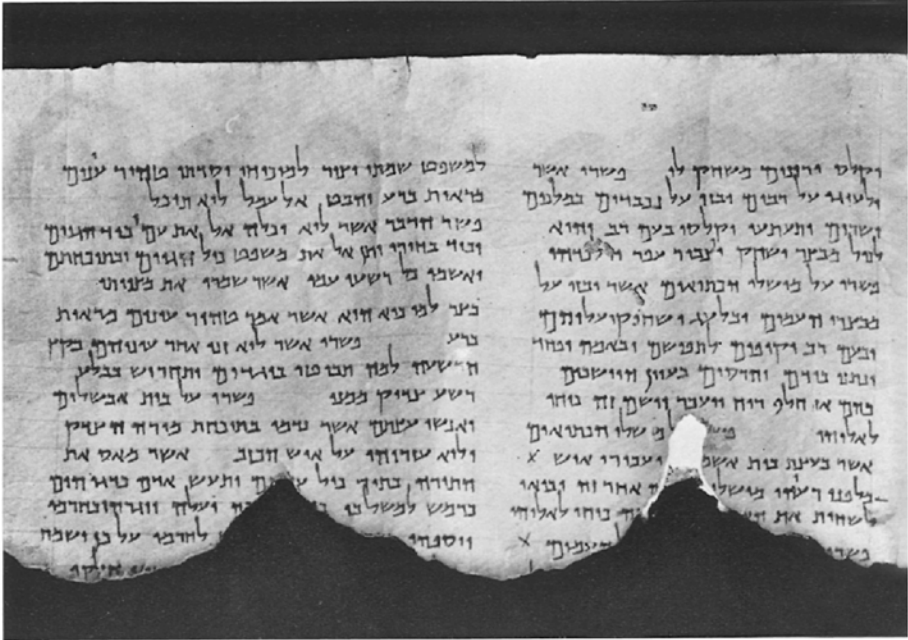 וקלס ורזנים משחק לו פשרו אשר
ילעיגו על רבים ובזו על נכבדים במלכים
ושרים יתעתעו וקלסו בעם רב והוא
לכול מבצר ישחק ויצבור עפר וילכדהו
פשרו על מושלי הכתיאים אשר יבזו על
מבצרי העמים ובלעג ישחוקו עליהם
ובעם רב יקיפום לתפושם ובאמה ופחד
ינתנו בידם והרסום בעוון היושבים
בהם אז חלף רוח ויעבר וישם זה כוחו
לאלוהו מושלי הכתיאים
אשר בעצת בית אשמ יעבורו איש X
מלפני רעיהו מושלי ה אחר זה יבואו
לשחית את ה כוחו לאלוהו
פשרו העמים X
למשפט שמתו וצור למוכיחו יסדתו טהור עינים
מראות ברע והבט אל עמל לוא תוכל
פשר הדבר אשר לוא יכלה אל את עמו ביד הגוים
וביד בחירו יתן אל את משפט כול הגוים ובתוכחתם
יאשמו כל רשעי עמו אשר שמרו את מצוותו
בצר למו כיא הוא אשר אמר טהור עינים מראות
ברע פשרו אשר לוא זנו אחר עיניהם בקץ
הרשעה למה תביטו בוגדים ותחריש בבלע
רשע צדיק ממנו פשרו על בית אבשלום
ואנשי עצתם אשר נדמו בתוכחת מורה הצדק
ולוא עזרוהו על איש הכזב אשר מאס את
התורה בתוך כול ם ותעש אדם כדגי הים
כרמש למשל בו ה יעלה ויגרהו בחרמו
ויספהו לחרמו על כן ישמח